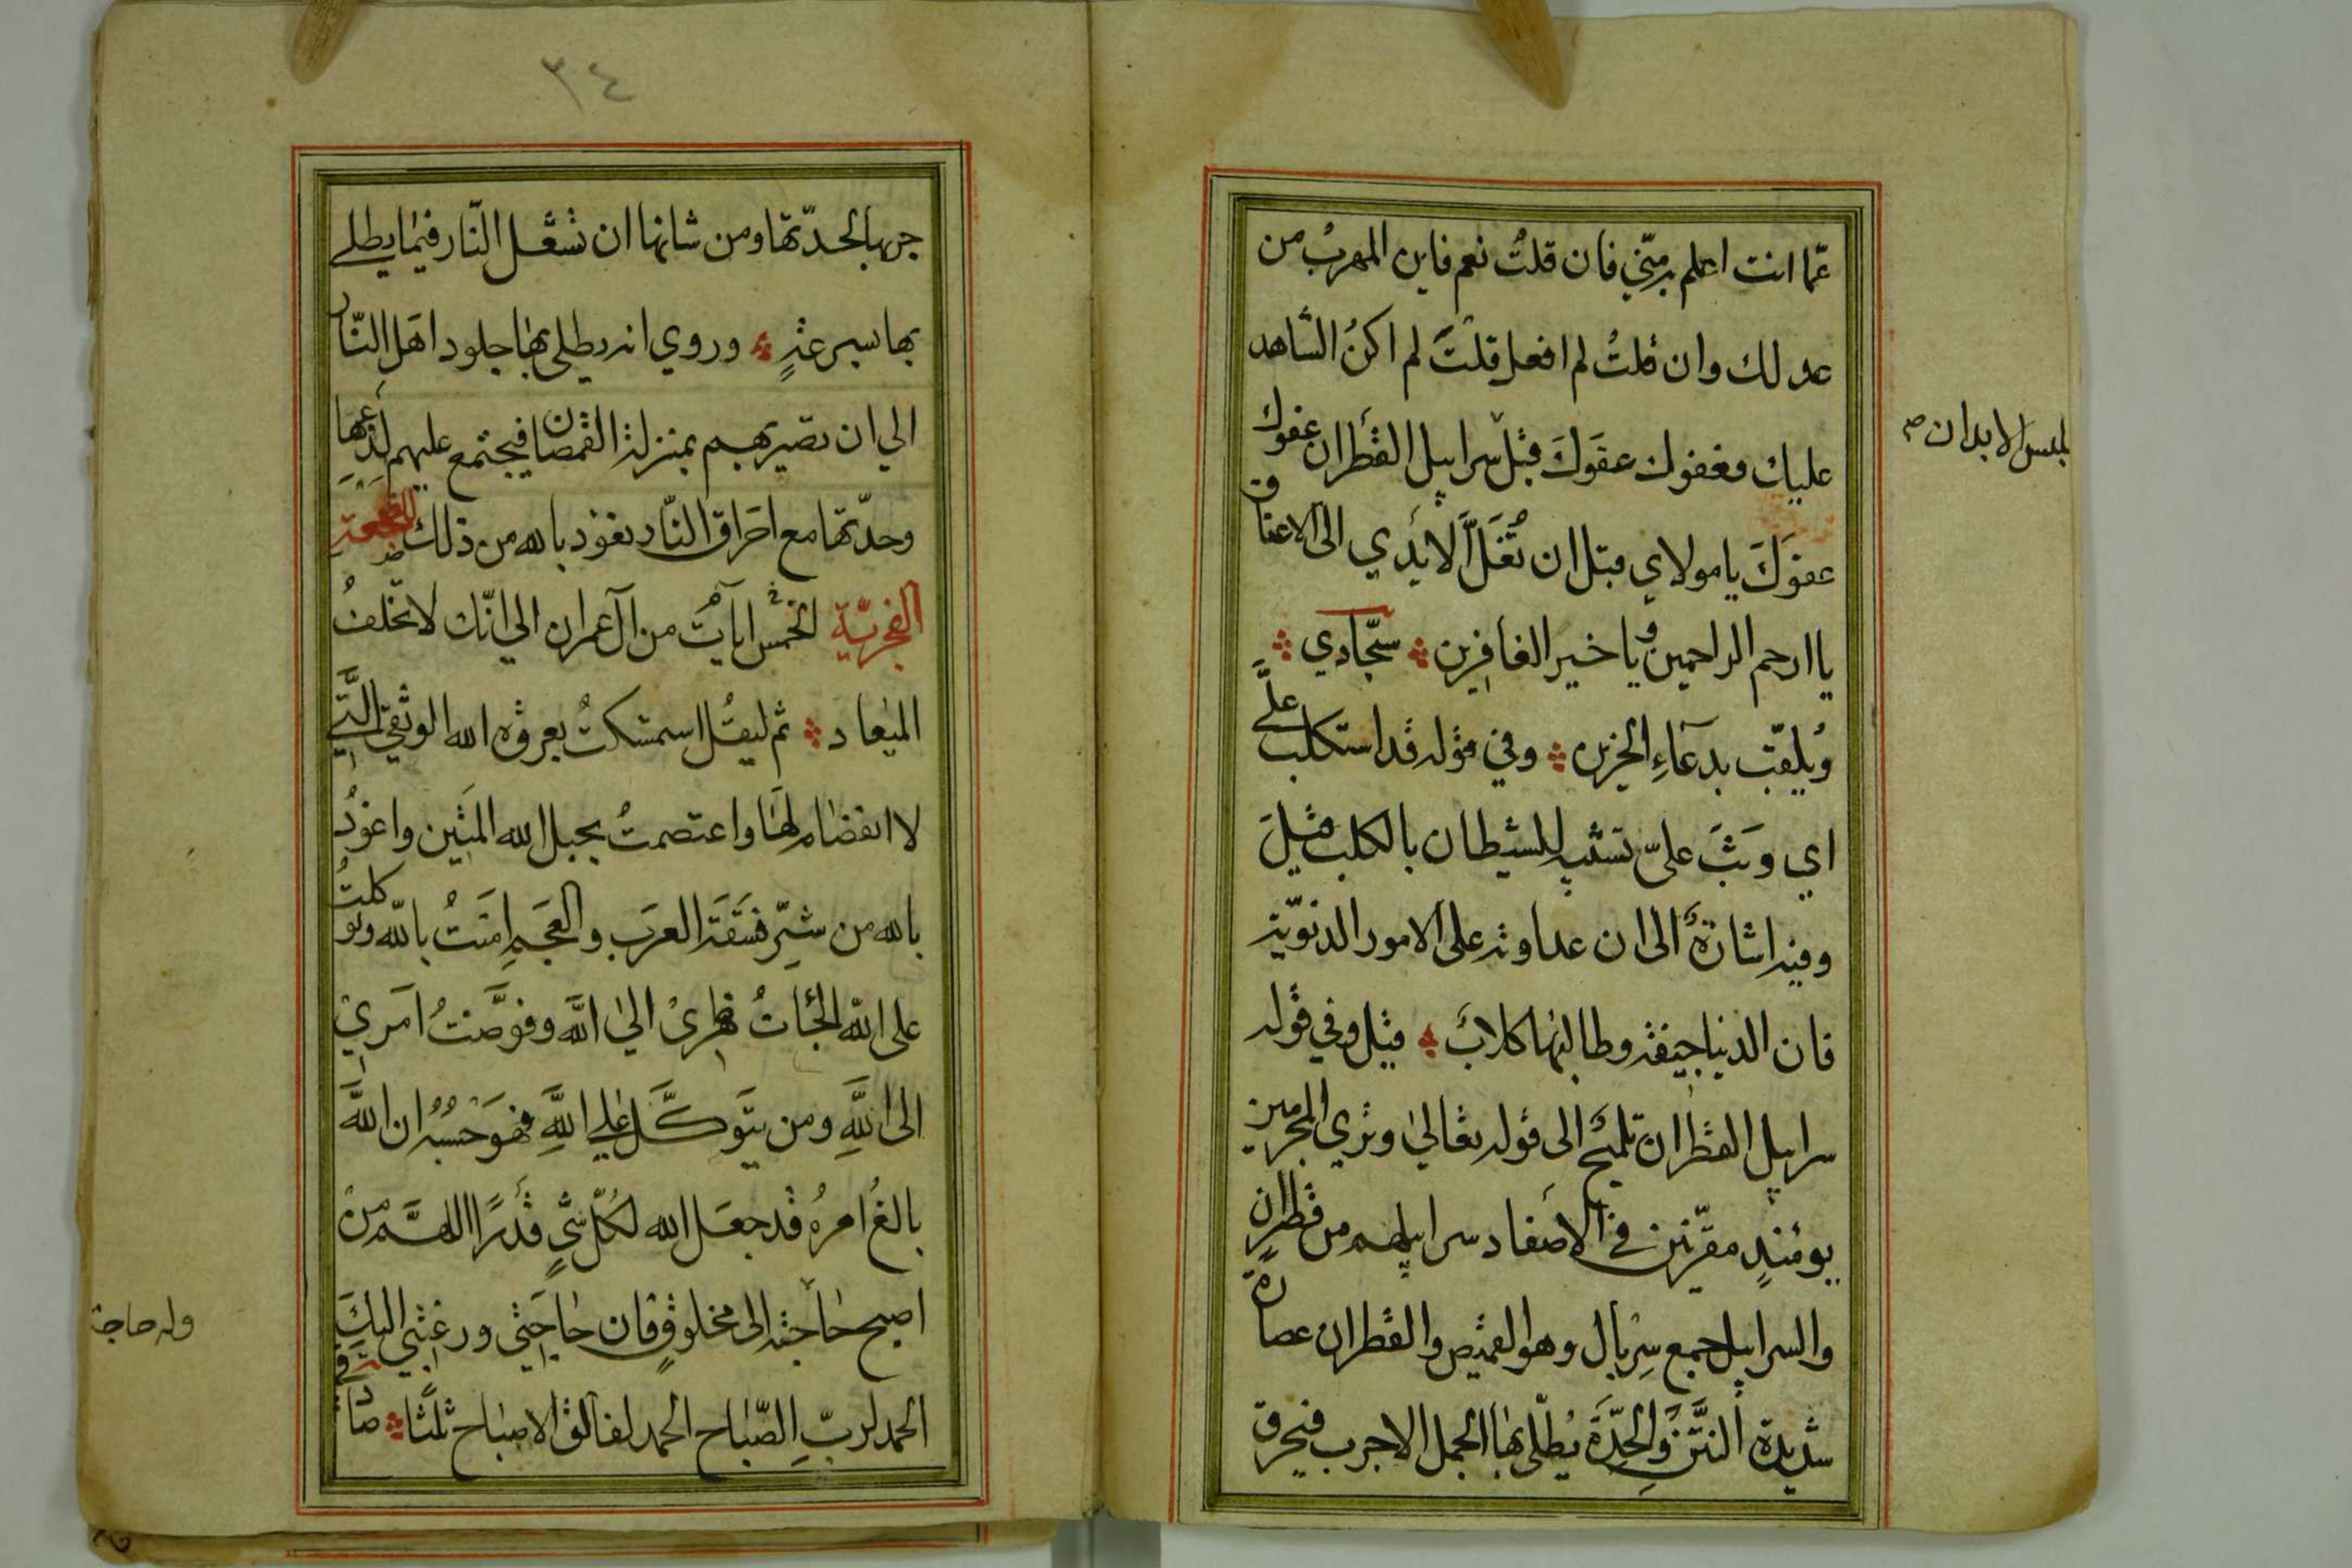 عمّا انت اعلم به منّي فان قلتُ نعم فاين المهربُ من
عدلك وان قلتُ لم افعل قلتَ لم اكنُ الشاهد
عليك فعفوك عفوَكَ قبل سرابيل القطران عفوك
عفوَكَ يا مولاي قبل ان تُغَلَّ الايدي الى الاعناق
يا ارحم الراحمين ويا خير الغافرين سجّادي
ويُلقّب بدعآءِ الحزين وفي قوله قد استكلب علَيَّ
اي وَثَبَ عليّ تشبيه للشيطان بالكلب قيلَ
وفيه اشارةٌ الى ان عداوته على الامور الدنويّة
فان الدنيا جيفة وطالبها كلابٌ قيل وفي قوله
سرابيل القطران تلميح الى قوله تعالى وتري المجرمين
يومئذٍ مقرّنين في الاصفاد سرابيلهم من قطران
والسرابيل جمع سِربال وهو القميص والقطران عصارة
شديدة النَّتنِ والحِدَّة يُطلّى بها الجمل الاجرب فيحرق
لملبس الابدان صح
٣٤
جربه بالحدّتها ومن شانها ان تشعل النّار فيما يطلي
بها سرعةٍ وروي انه يطلى بها جلود اهل النّار
الي ان تصير بهم بمنزلة القمصان فيجتمع عليهم لذعها
وحدّتها مع احراق النّار نعوذ بالله من ذلك
الفجريّة الخمس ايات من آل عمران الي انّك لا تخلفُ
الميعاد ثم ليقُل استمسكتُ بعروة الله الوثقي الَّتي
لا انفصام لها واعتصمتُ بحبل الله المتين واعوذُ
بالله من شرّ فسَقَة العرَب والعَجَم امَنتُ بالله وتوكلتُ
على الله الجَاتُ ظهرىْ الي اللَّه وفوَّضتُ امَريْ
الى اللَّهِ ومن يتَوكَّل علي اللَّهِ فهوَ حَسْبُه ان اللَّه
بالغُ امرهُ قد جعَل الله لكُلّ شَيٍ قَدرًا اللهمَّ من
اصبح حاجته الى مخلوقٍ فان حاجَتي ورغبتي اليكَ
الحمد لربّ الصّباح الحمد لفالق الاصباح ثلثًا
وله حاجة